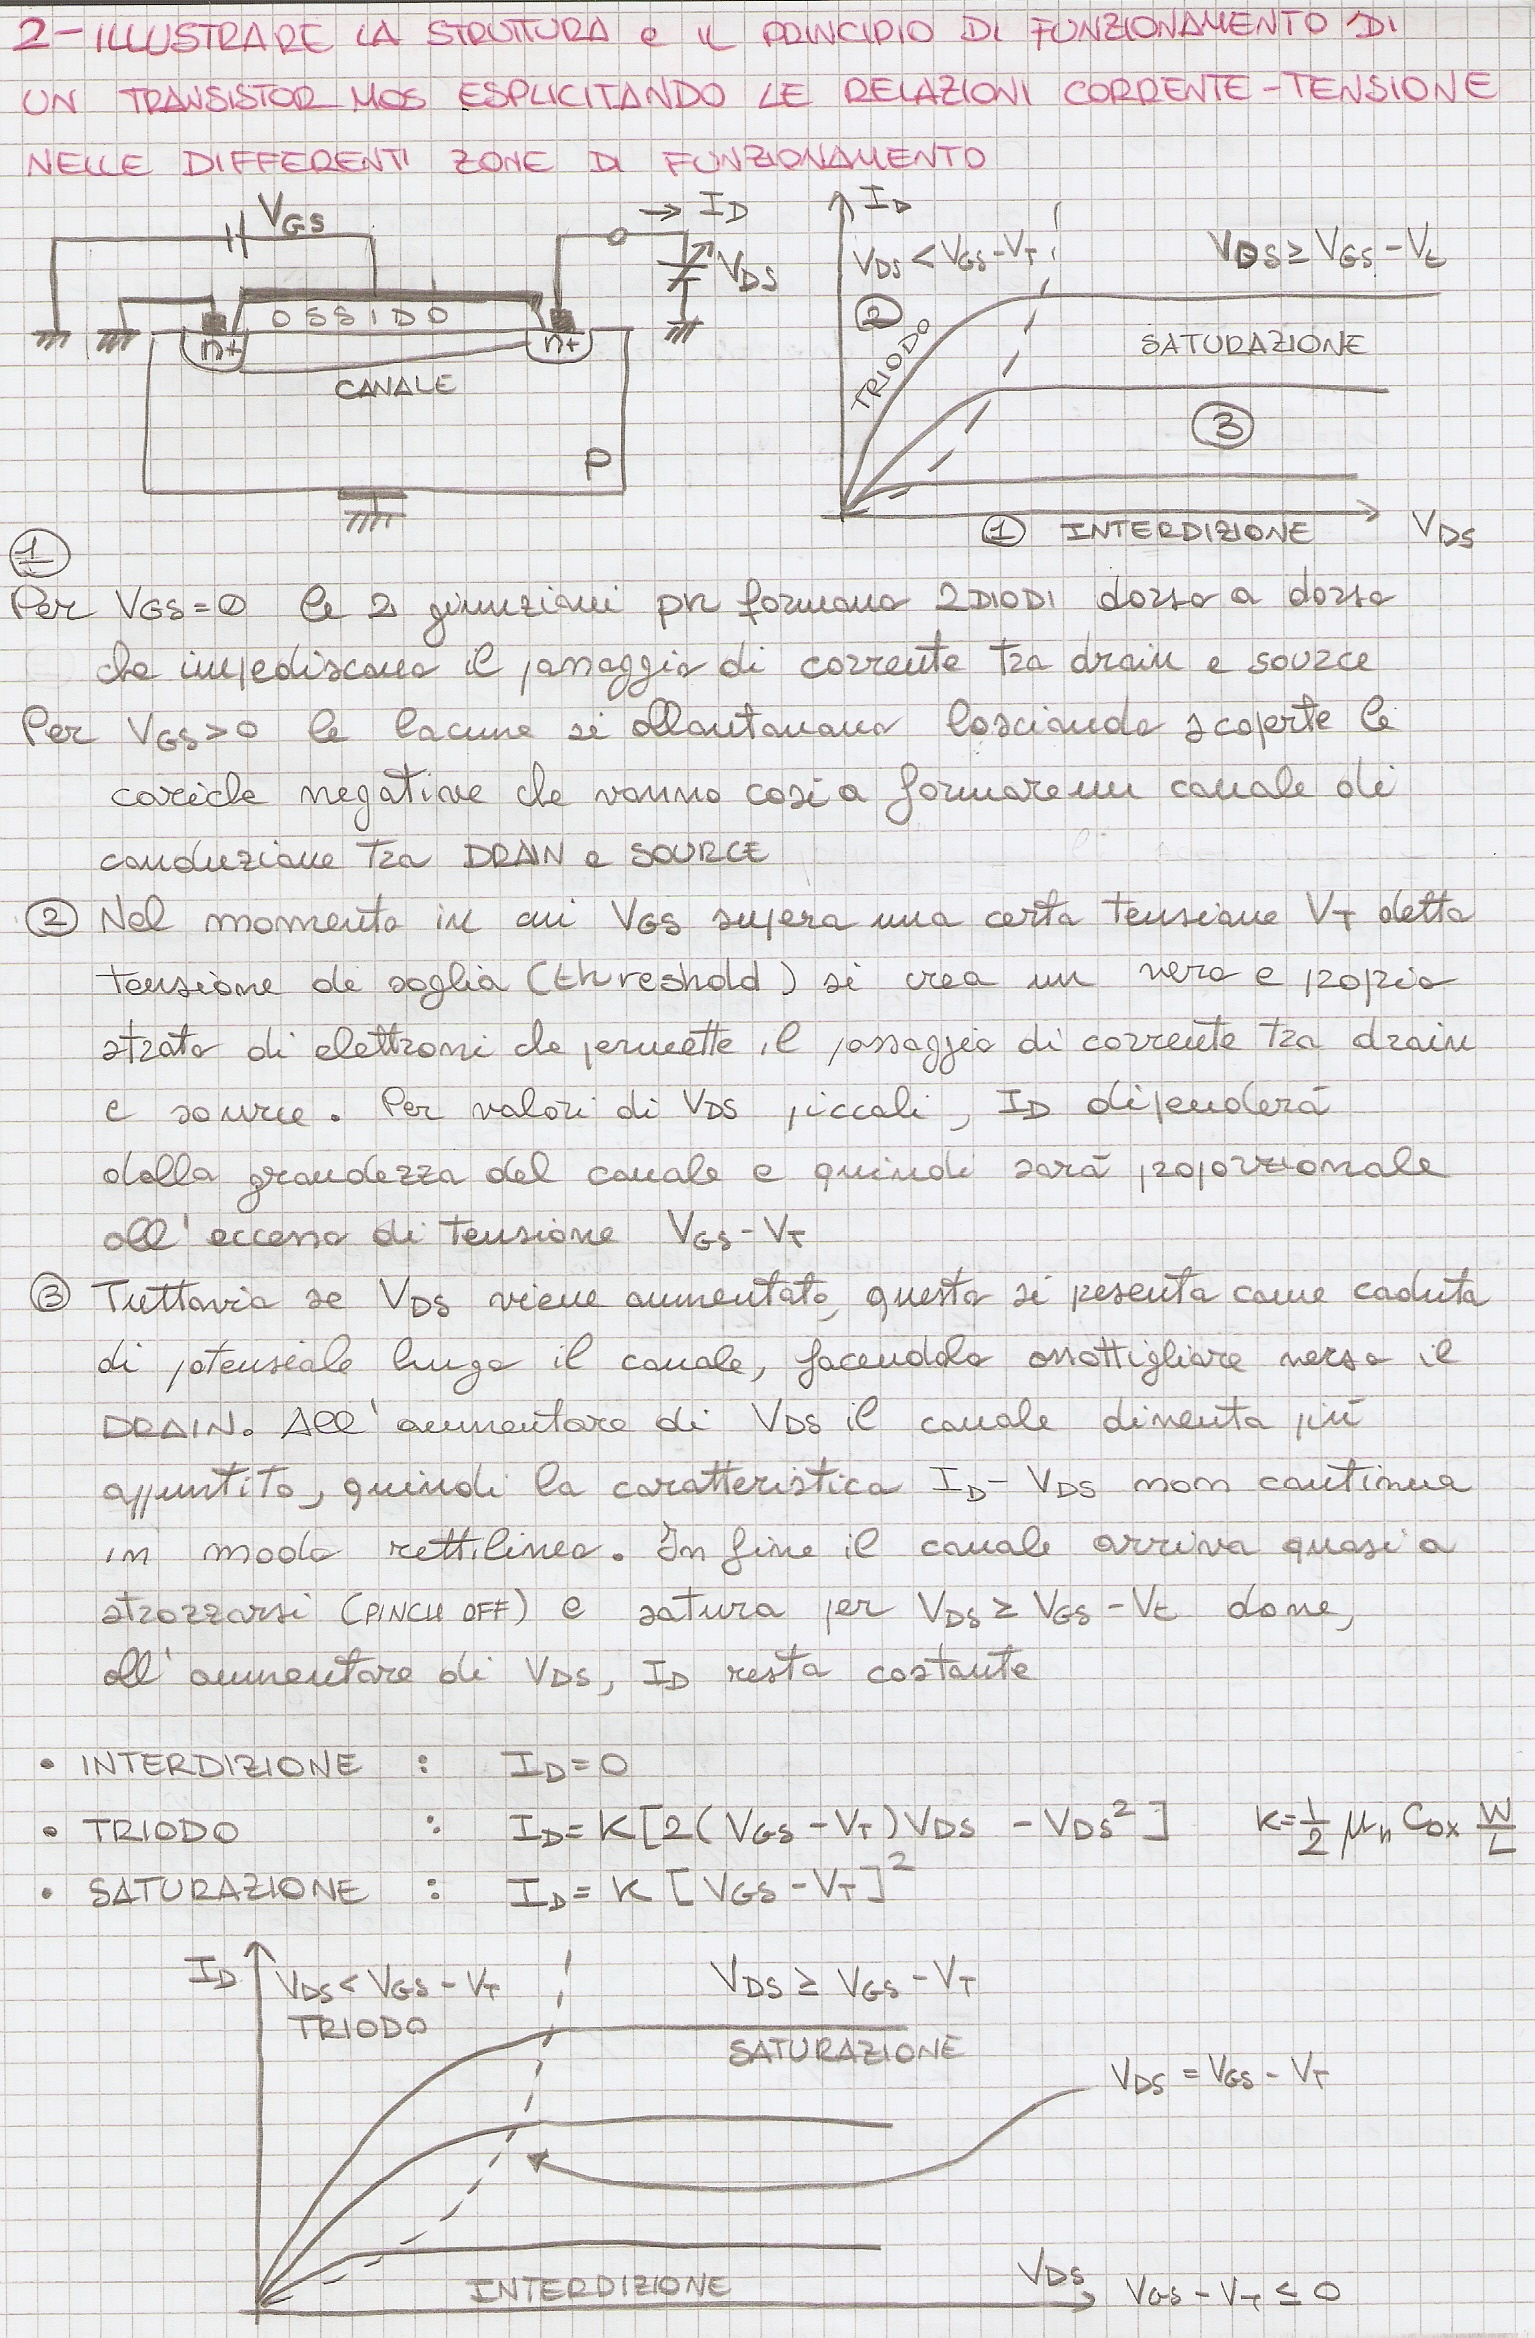 2-ILLUSTRARE LA STRUTTURA e IL PRINCIPIO DI FUNZIONAMENTO DI
UN TRANSISTOR MOS ESPLICITANDO LE RELAZIONI CORRENTE-TENSIONE
NELLE DIFFERENTI ZONE DI FUNZIONAMENTO
VGS
→ ID
VDS
OSSIDO
n+
n+
CANALE
P
ID
VDS < VGS-VT
VDS ≥ VGS - Vt
2
TRIODO
SATURAZIONE
3
1 INTERDIZIONE
VDS
1
Per VGS=0 le 2 giunzioni pn formano 2DIODI dorso a dorso
che impediscono il passaggio di corrente tra drain e source
Per VGS>0 le lacune si allontanano lasciando scoperte le
cariche negative che vanno così a formare un canale di
conduzione tra DRAIN e SOURCE
2 Nel momento in cui VGS supera una certa tensione VT detta
tensione di soglia (threshold) si crea un vero e proprio
strato di elettroni che permette il passaggio di corrente tra drain
e source. Per valori di VDS piccoli, ID dipenderà
dalla grandezza del canale e quindi sarà proporzionale
all'eccesso di tensione VGS-VT
3 Tuttavia se VDS viene aumentato, questo si presenta come caduta
di potenziale lungo il canale, facendolo assottigliare verso il
DRAIN. All'aumentare di VDS il canale diventa più
appuntito, quindi la caratteristica ID-VDS non continua
in modo rettilineo. In fine il canale arriva quasi a
strozzarsi (PINCH OFF) e satura per VDS ≥ VGS-Vt dove,
all'aumentare di VDS, ID resta costante
• INTERDIZIONE : ID=0
• TRIODO : ID=K[2(VGS-VT)VDS - VDS²] K=1/2 μn Cox W/L
• SATURAZIONE : ID=K[VGS-VT]²
ID
VDS < VGS - VT
TRIODO
VDS ≥ VGS - VT
SATURAZIONE
VDS = VGS - VT
INTERDIZIONE
VDS
VGS - VT ≤ 0